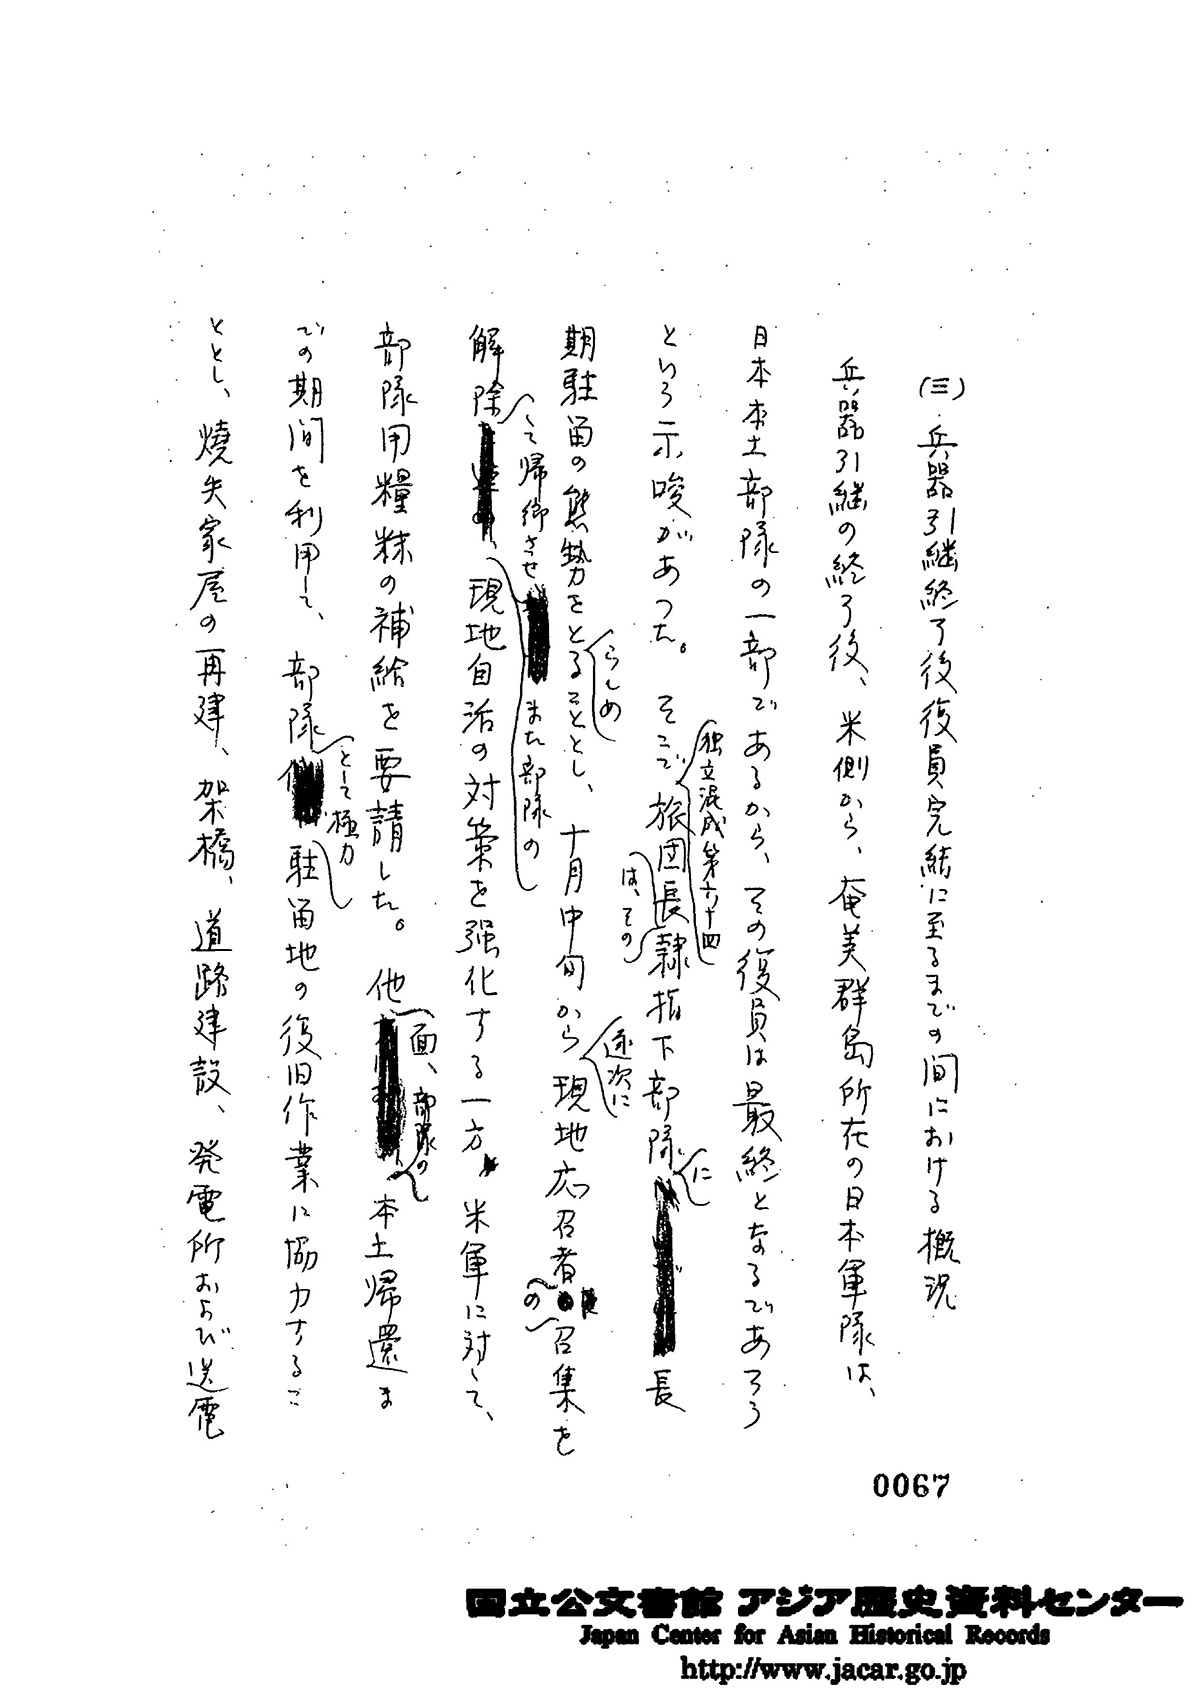 (三) 兵器引継終了後復員完結に至るまでの間における概況
兵器引継の終了後、米側から、奄美群島所在の日本軍隊は、
日本本土部隊の一部であるから、その復員は最終となるであろう
という示唆があつた。そこで独立混成第六十四旅団長は、その隷指下部隊に長
期駐留の態勢をとらしめることとし、十月中旬から逐次に現地応召者の召集を
解除して帰郷させまた部隊の現地自活の対策を強化する一方、米軍に対して、
部隊用糧秣の補給を要請した。他面、部隊の本土帰還ま
での期間を利用して、部隊として極力駐留地の復旧作業に協力するこ
ととし、燒失家屋の再建、架橋、道路建設、発電所および送電
0067
国立公文書館 アジア歴史資料センター
Japan Center for Asian Historical Records
http://www.jacar.go.jp